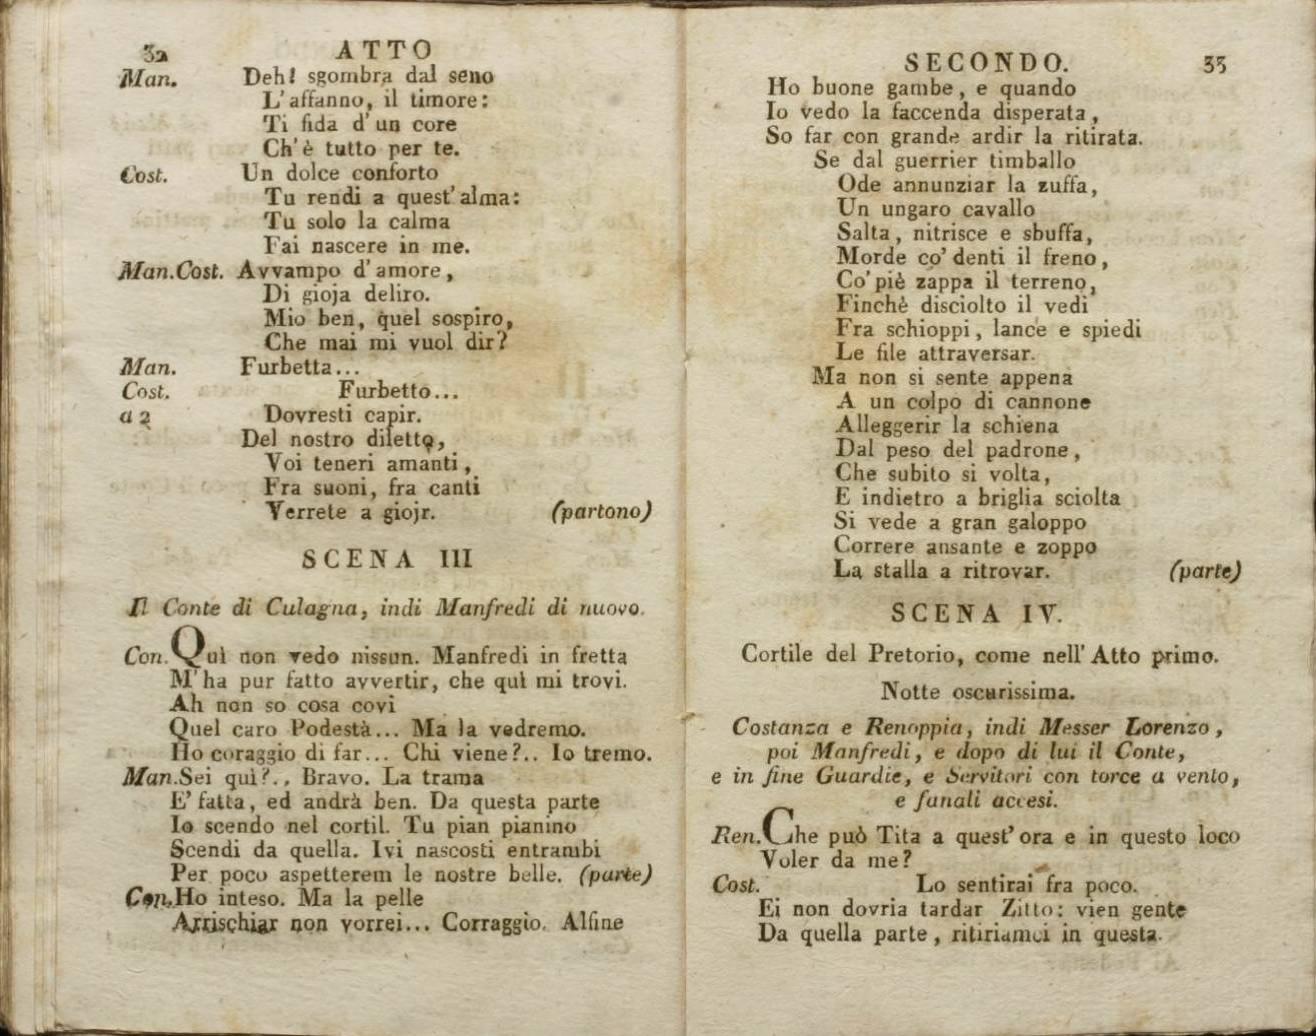 32 ATTO
Man. Deh! sgombra dal seno
L'affanno, il timore:
Ti fida d'un core
Ch'è tutto per te.
Cost. Un dolce conforto
Tu rendi a quest'alma:
Tu solo la calma
Fai nascere in me.
Man.Cost. Avvampo d'amore,
Di gioja deliro.
Mio ben, quel sospiro,
Che mai mi vuol dir?
Man. Furbetta...
Cost. Furbetto...
a 2 Dovresti capir.
Del nostro diletto,
Voi teneri amanti,
Fra suoni, fra canti
Verrete a giojr. (partono)
SCENA III
Il Conte di Culagna, indi Manfredi di nuovo.
Con. Quì non vedo nissun. Manfredi in fretta
M'ha pur fatto avvertir, che quì mi trovi.
Ah non so cosa covi
Quel caro Podestà... Ma la vedremo.
Ho coraggio di far... Chi viene?.. Io tremo.
Man. Sei quì?.. Bravo. La trama
E' fatta, ed andrà ben. Da questa parte
Io scendo nel cortil. Tu pian pianino
Scendi da quella. Ivi nascosti entrambi
Per poco aspetterem le nostre belle. (parte)
Con. Ho inteso. Ma la pelle
Arrischiar non vorrei... Corraggio. Alfine
SECONDO. 33
Ho buone gambe, e quando
Io vedo la faccenda disperata,
So far con grande ardir la ritirata.
Se dal guerrier timballo
Ode annunziar la zuffa,
Un ungaro cavallo
Salta, nitrisce e sbuffa,
Morde co' denti il freno,
Co' piè zappa il terreno,
Finchè disciolto il vedi
Fra schioppi, lance e spiedi
Le file attraversar.
Ma non si sente appena
A un colpo di cannone
Alleggerir la schiena
Dal peso del padrone,
Che subito si volta,
E indietro a briglia sciolta
Si vede a gran galoppo
Correre ansante e zoppo
La stalla a ritrovar. (parte)
SCENA IV.
Cortile del Pretorio, come nell'Atto primo.
Notte oscurissima.
Costanza e Renoppia, indi Messer Lorenzo,
poi Manfredi, e dopo di lui il Conte,
e in fine Guardie, e Servitori con torce a vento,
e fanali accesi.
Ren. Che può Tita a quest'ora e in questo loco
Voler da me?
Cost. Lo sentirai fra poco.
Ei non dovria tardar Zitto: vien gente
Da quella parte, ritiriamci in questa.